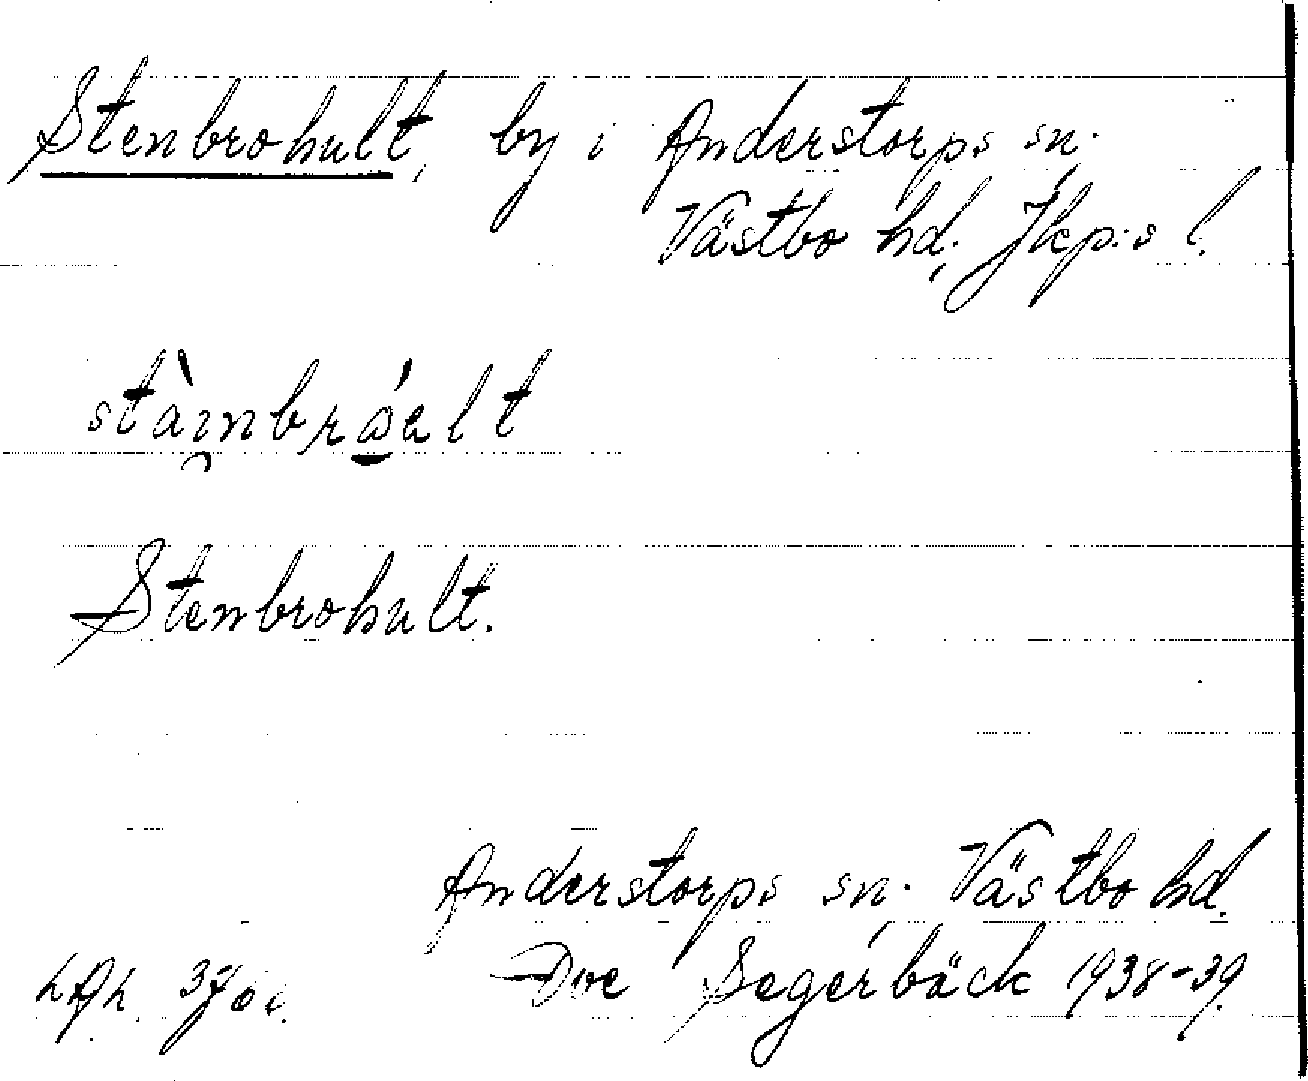 Stenbrohult, by i Anderstorps sn.
Västbo hd. Jkp:s l.
stàinbrǻult
Stenbrohult.
Anderstorps sn. Västbo hd.
Segerbäck 1938-39.